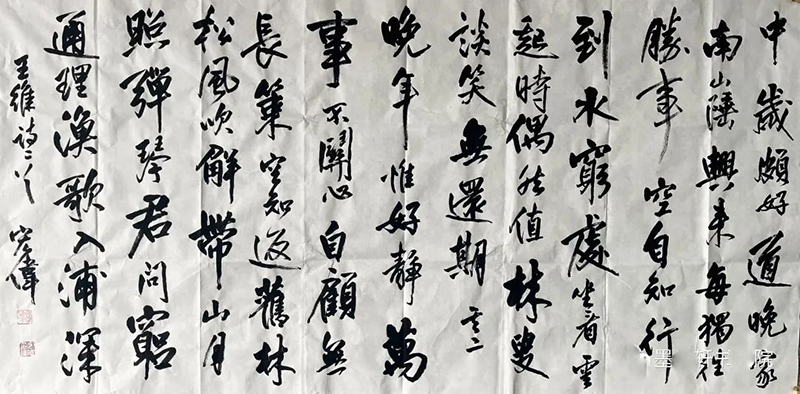 中歲頗好道晚家
南山陲興来每獨往
勝事空自知行
到水窮處坐看雲
起時偶然值林叟
談笑無還期 其二
晚年惟好靜萬
事不關心自顧無
長策空知返舊林
松風吹解帶山月
照彈琴君問窮
通理漁歌入浦深
王維詩二首